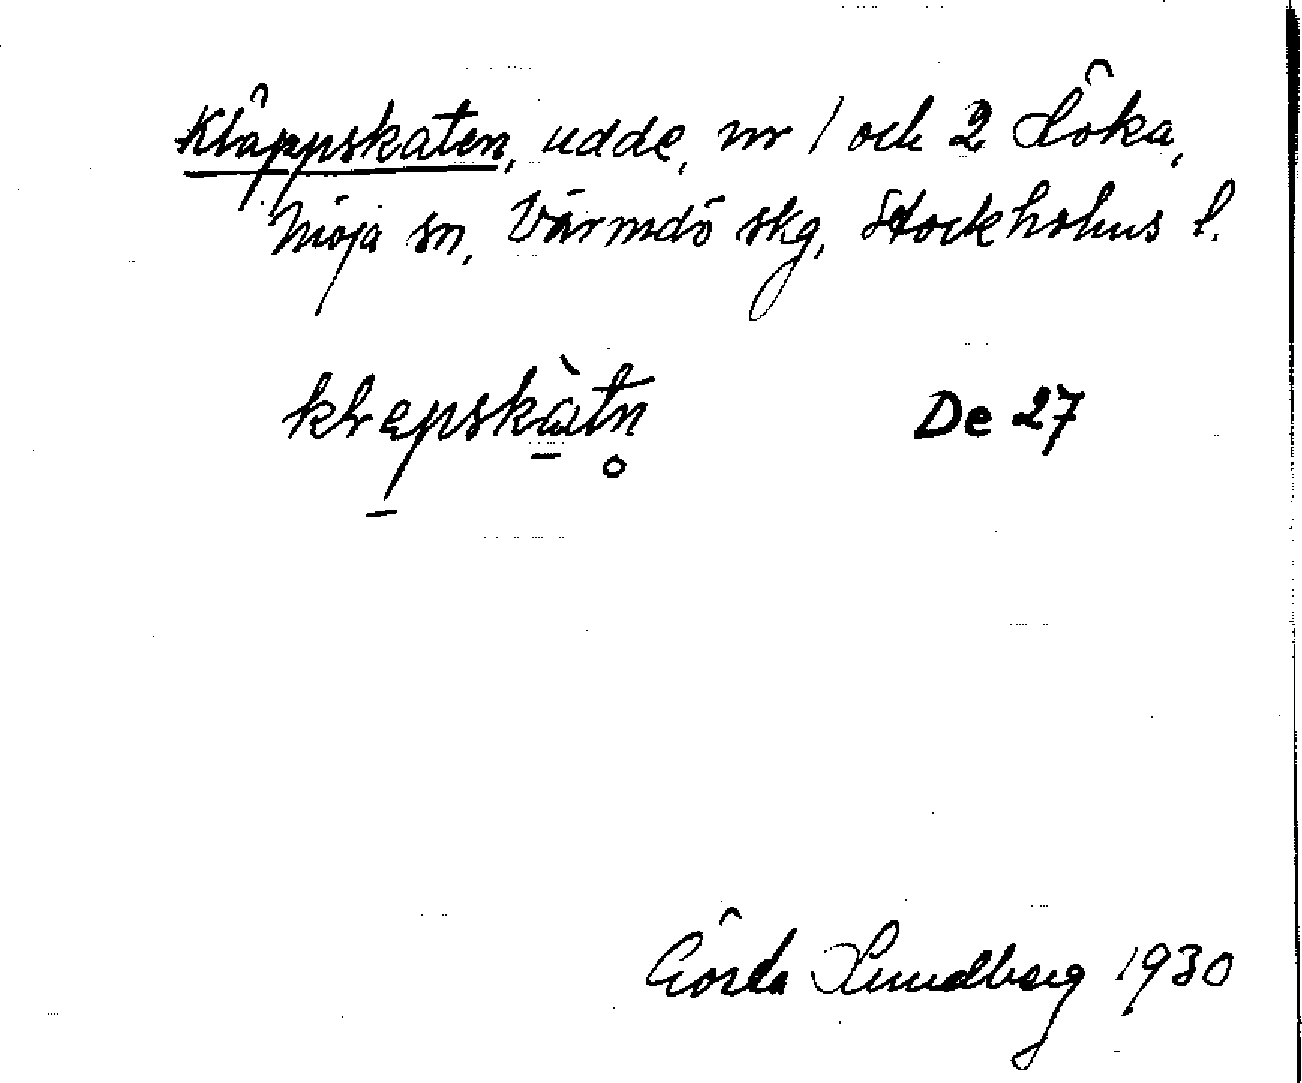 Kläppskaten, udde, nr 1 och 2 Löka,
Möja sn, Värmdö skg, Stockholms l.
klæpskàtn
De 27
Gösta Lundberg 1930